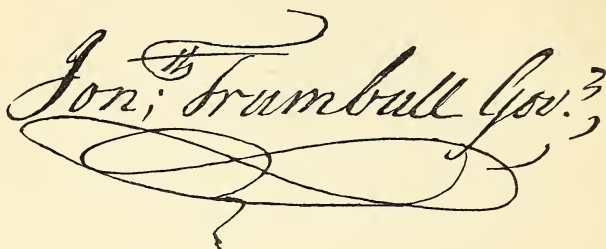 Jon;th Trumbull Gov.r,